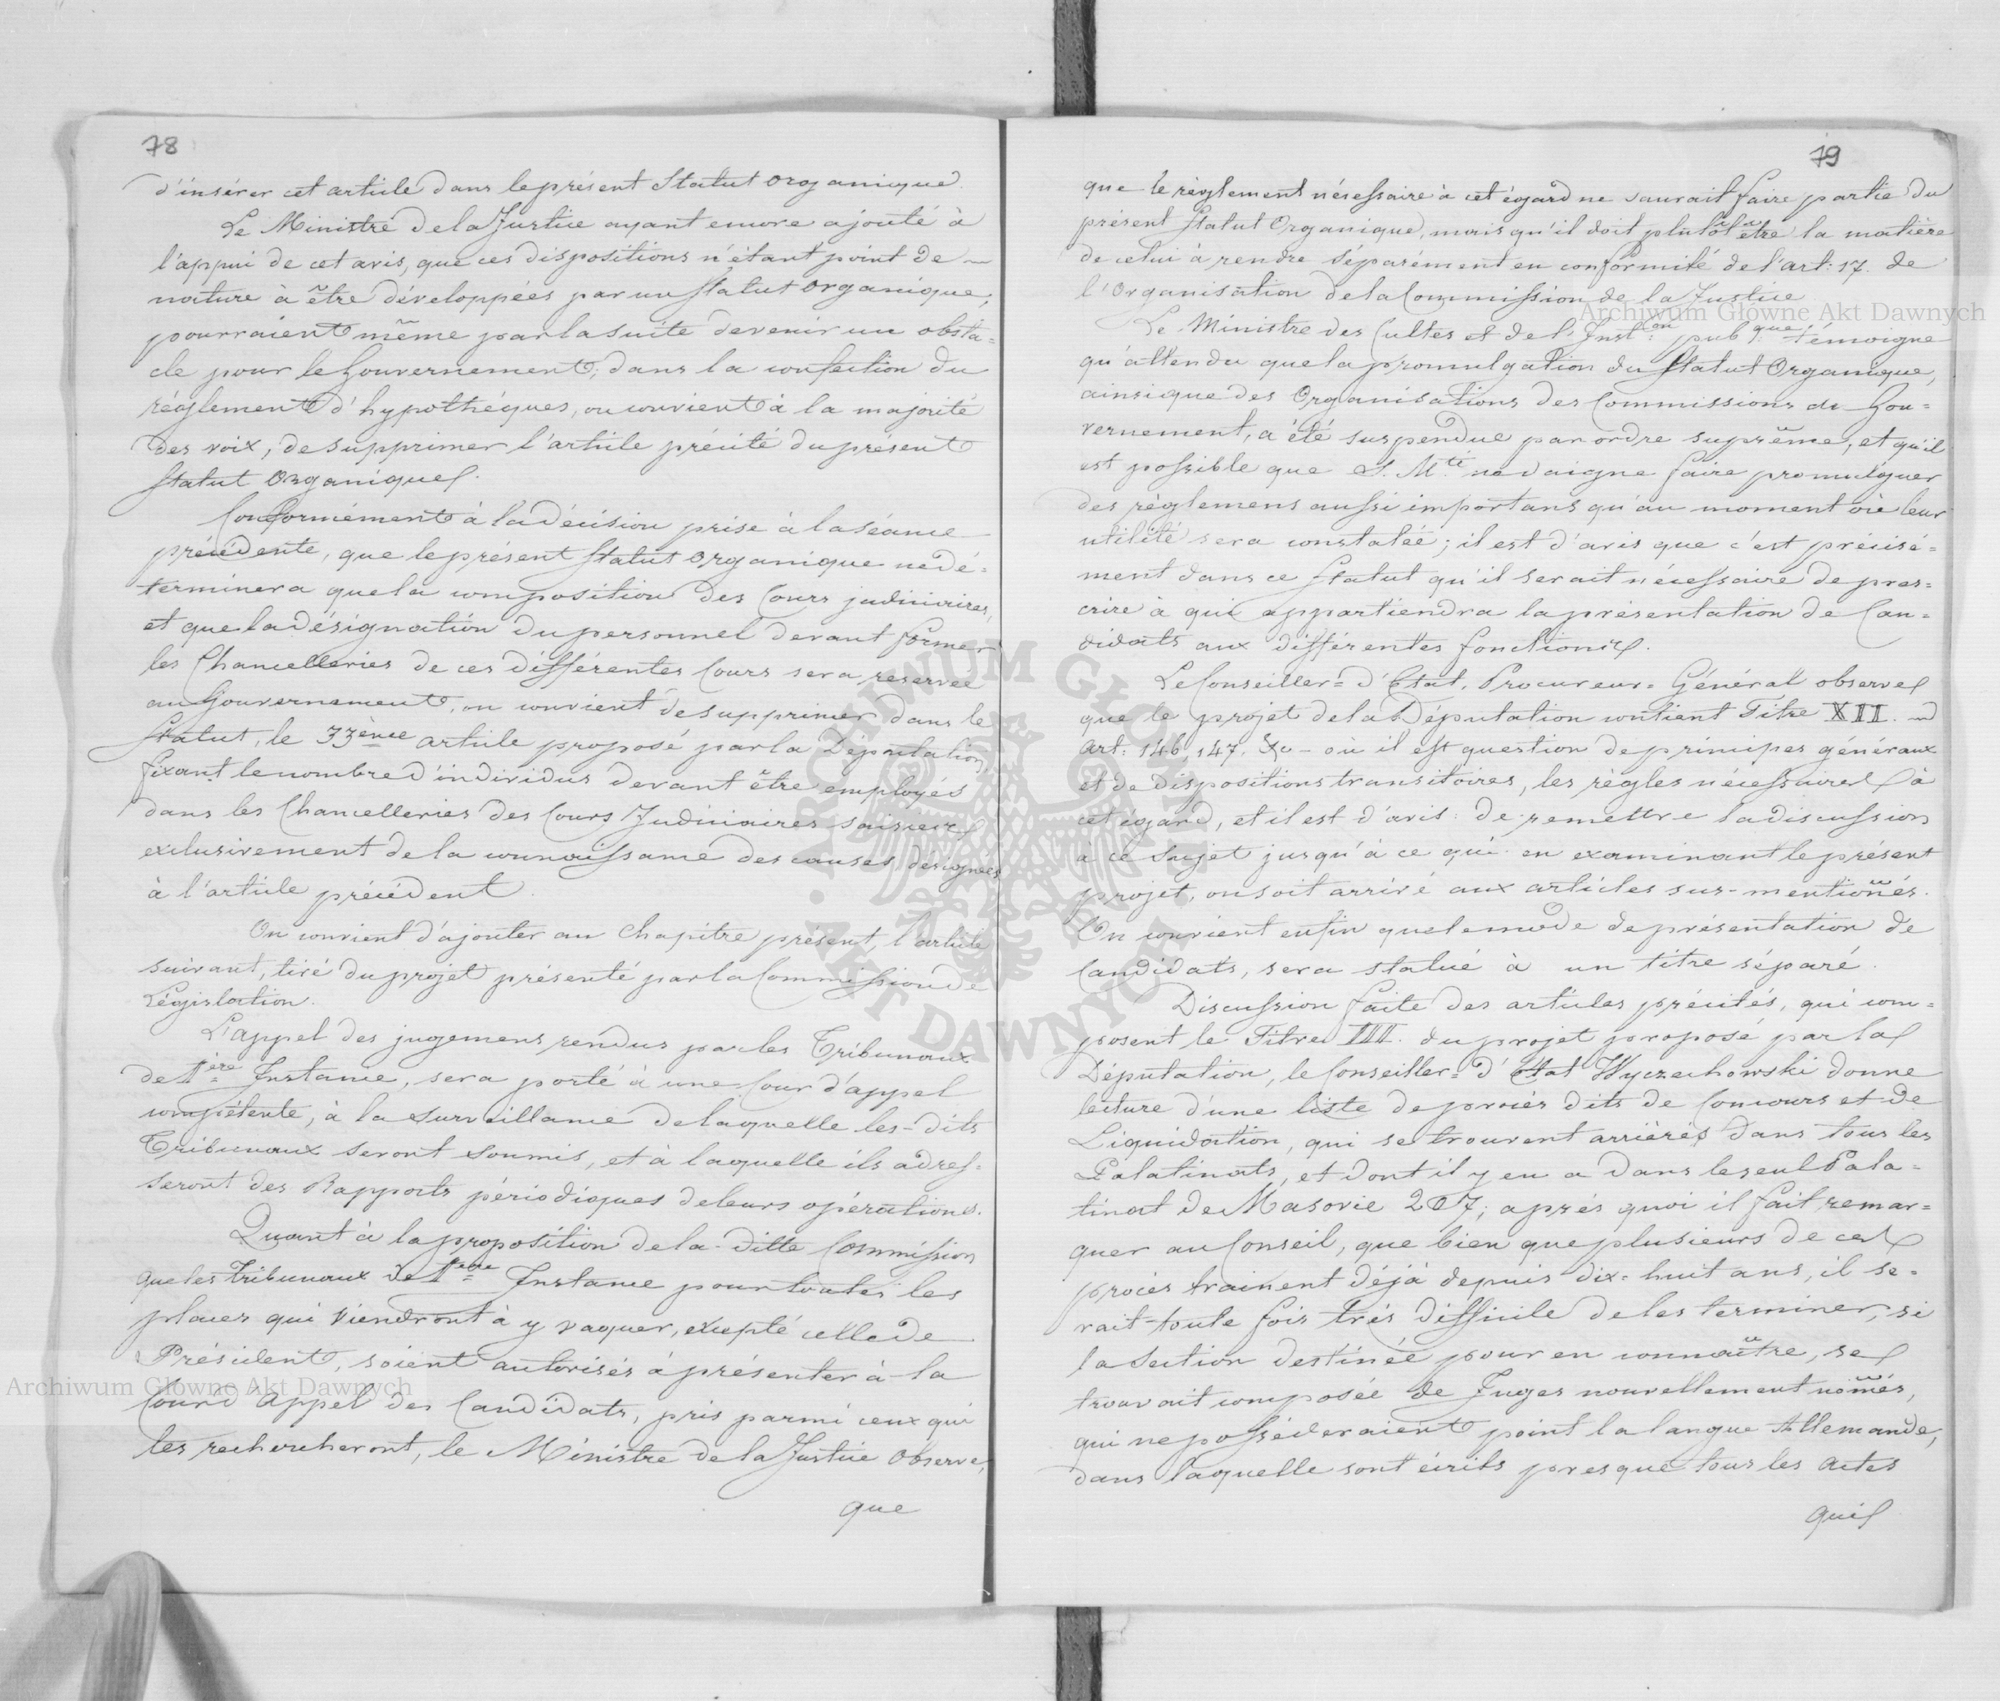 78
d'insérer cet article dans le présent Statut Organique.
Le Ministre de la Justice ayant encore ajouté à
l'appui de cet avis, que ces dispositions n'étant point de
nature à être développées par un Statut Organique,
pourraient même par la suite devenir un obsta=
cle pour le Gouvernement, dans la confection du
réglement d'hypothéques, on convient à la majorité
des voix, de supprimer l'article précité du présent
Statut Organique.
Conformément à la décision prise à la séance
précédente, que le présent Statut Organique ne dé=
terminera que la composition des Cours judiciaires,
et que la désignation du personnel devant former
les Chancelleries de ces différentes Cours sera reservée
au Gouvernement, on convient de supprimer dans le
Statut, le 33ème article proposé par la Députation,
fixant le nombre d'individus devant être employés
dans les Chancelleries des Cours Judiciaires saisies
exclusivement de la connaissance des causes, désignées
à l'article précédent.
On convient d'ajouter au Chapitre présent, l'article
suivant, tiré du projet présenté par la Commission de
Législation.
L'appel des jugemens rendus par les Tribunaux
de 1ère Instance, sera porté à une Cour d'appel
compétente, à la surveillance de laquelle les-dits
Tribunaux seront soumis, et à laquelle ils adres=
seront des Rapports périodiques de leurs opérations.
Quant à la proposition de la-ditte Commission
que les Tribunaux de 1ère Instance pour toutes les
places qui viendront à y vaquer, excepté celle de
Président, soient autorisés à présenter à la
Cour d'Appel des Candidats, pris parmi ceux qui
les rechercheront, le Ministre de la Justice observe,
que
79
que le règlement nécessaire à cet égard ne saurait faire partie du
présent Statut Organique, mais qu'il doit plutôt être la matière
de celui à rendre séparément en conformité de l'art: 17. de
l'Organisation de la Commission de la Justice
Le Ministre des Cultes et de l'Inst:on pub:que témoigne
qu'attendu que la promulgation du Statut Organique,
ainsi que des Organisations des Commissions de Gou=
vernement, a été suspendue par ordre suprême, et qu'il
est possible que S. M.té ne daigne faire promulguer
des règlemens aussi importans qu'au moment où leur
utilité sera constatée; il est d'avis que c'est précisé=
ment dans ce Statut qu'il serait nécessaire de pres=
crire à qui appartiendra la présentation de Can=
didats aux différentes fonctions.
Le Conseiller= d'Etat, Procureur= Général observe
que le projet de la Députation contient Titre XII.
Art: 146, 147, &c - où il est question de principes généraux
et de Dispositions transitoires, les règles nécessaires à
cet égard, et il est d'avis: de remettre la discussion
à ce sujet jusqu'à ce qui en examinant le présent
projet, on soit arrivé aux articles sus-mentionés.
On convient enfin que le mode de présentation de
Candidats, sera statué à un titre séparé.
Discussion faite des articles précités, qui com=
posent le Titre III. du projet proposé par la
Députation, le Conseiller= d'Etat Wyczechowski donne
lecture d'une liste de procès dits de Concours et de
Liquidation, qui se trouvent arriérés dans tous les
Palatinats, et dont il y en a dans le seul Pala=
tinat de Masovie 207; après quoi il fait remar=
quer au Conseil, que bien que plusieurs de ces
procès trainent déjà depuis dix=huit ans, il se=
rait-toute fois très difficile de les terminer, si
la Section destinée pour en connaître, se
trouvait composée de Juges nouvellement només,
qui ne posséderaient point la langue Allemande,
dans laquelle sont écrits presque tous les actes
qui
Archiwum Główne Akt Dawnych
Archiwum Główne Akt Dawnych
ARCHIWUM GŁÓWNE
AKT DAWNYCH